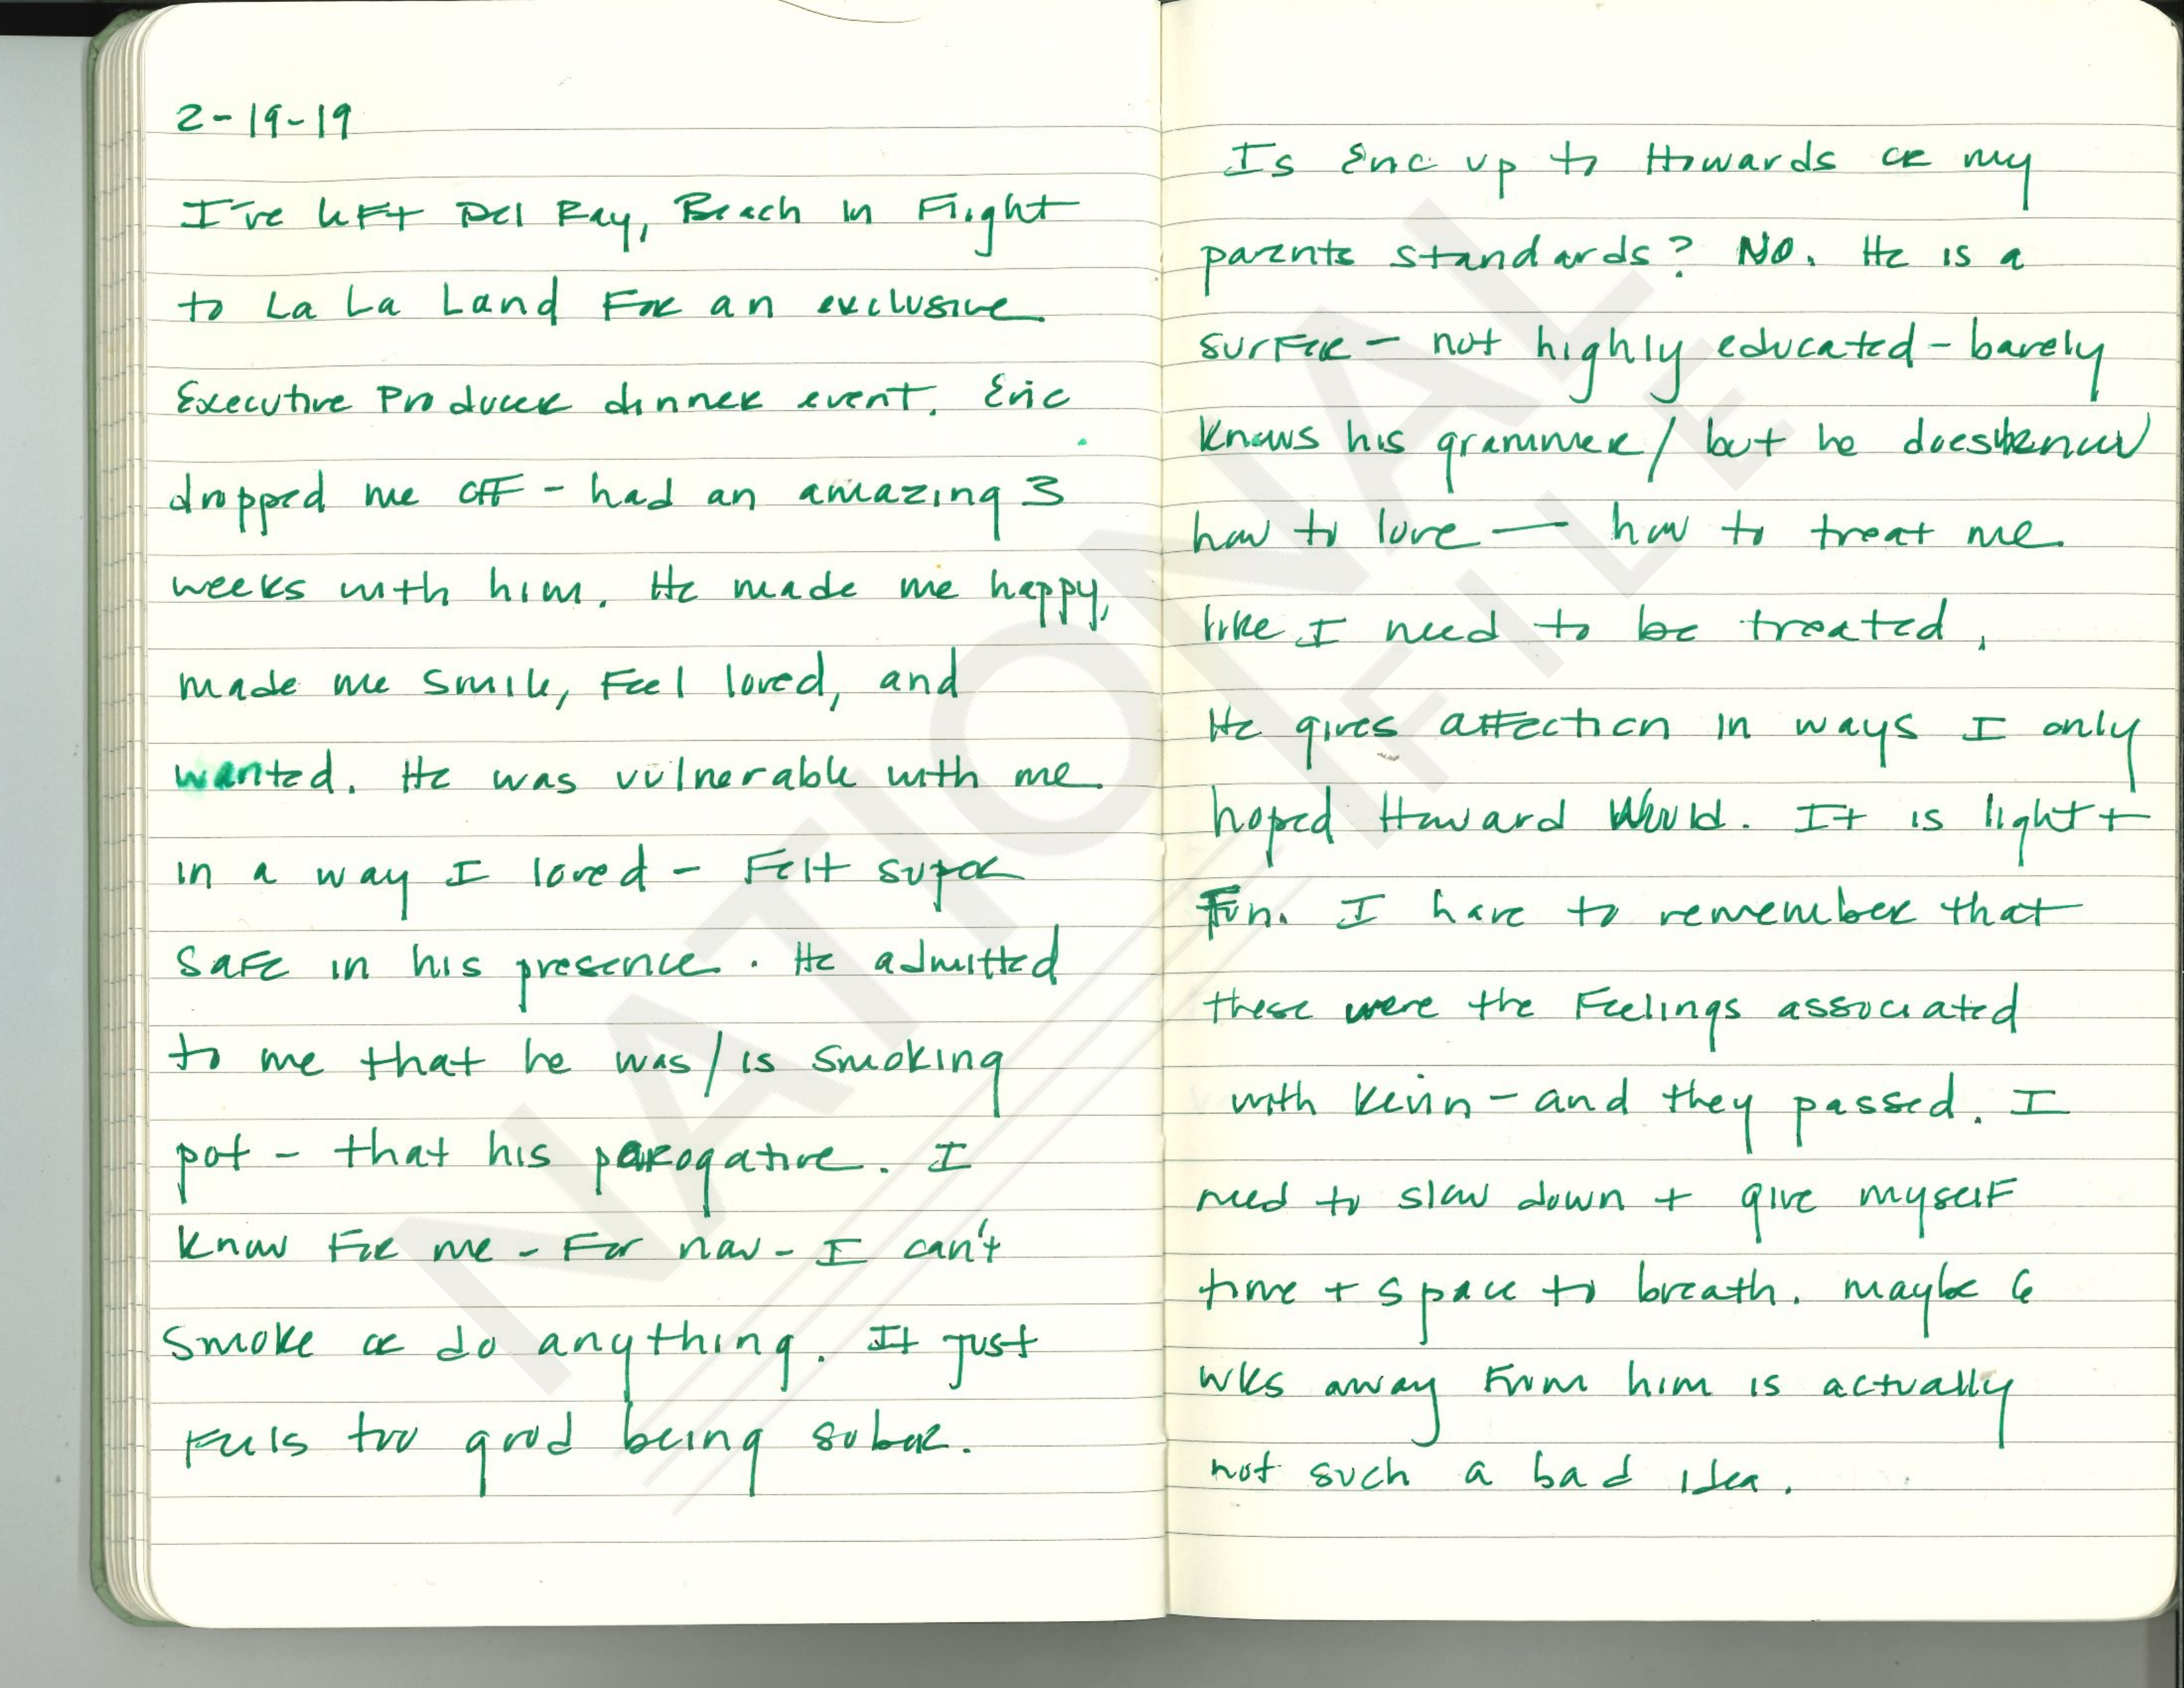 2-19-19
I've left Del Ray, Beach in Flight
to La La Land For an exclusive
Executive Producer dinner event. Eric
dropped me off - had an amazing 3
weeks with him. He made me happy,
made me smile, Feel loved, and
wanted. He was vulnerable with me
in a way I loved - Felt super
safe in his presence. He admitted
to me that he was/is smoking
pot - that his perogative. I
know For me - For now - I can't
smoke or do anything. It just
Feels too good being sober.
Is Eric up to Howards or my
parents standards? No. He is a
surfer - not highly educated - barely
knows his grammer/ but he does know
how to love — how to treat me
like I need to be treated.
He gives affection in ways I only
hoped Howard Would. It is light +
Fun. I have to remember that
these were the Feelings associated
with Kevin - and they passed. I
need to slow down + give myself
time + space to breath. maybe 6
wks away From him is actually
not such a bad idea.
NATIONAL
FILE